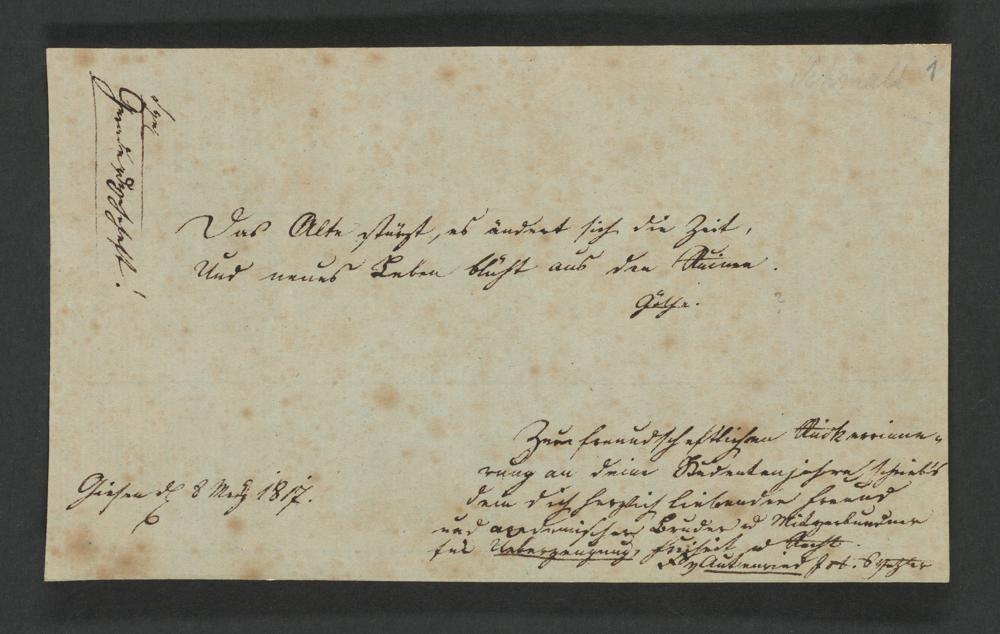 Das Alte stürzt, es ändert sich die Zeit,
Und neues Leben blüht aus den Ruinen.
Göthe.
Giesen d 8 März 1817.
Zum freundschaftlichen Rückerinne-
rung an deine Studentenjahre, schrieb's
dein dich herzlich liebender Freund
und academischer Bruder u Mitverbundner
für Ueberzeugung, Freiheit u Recht.
1